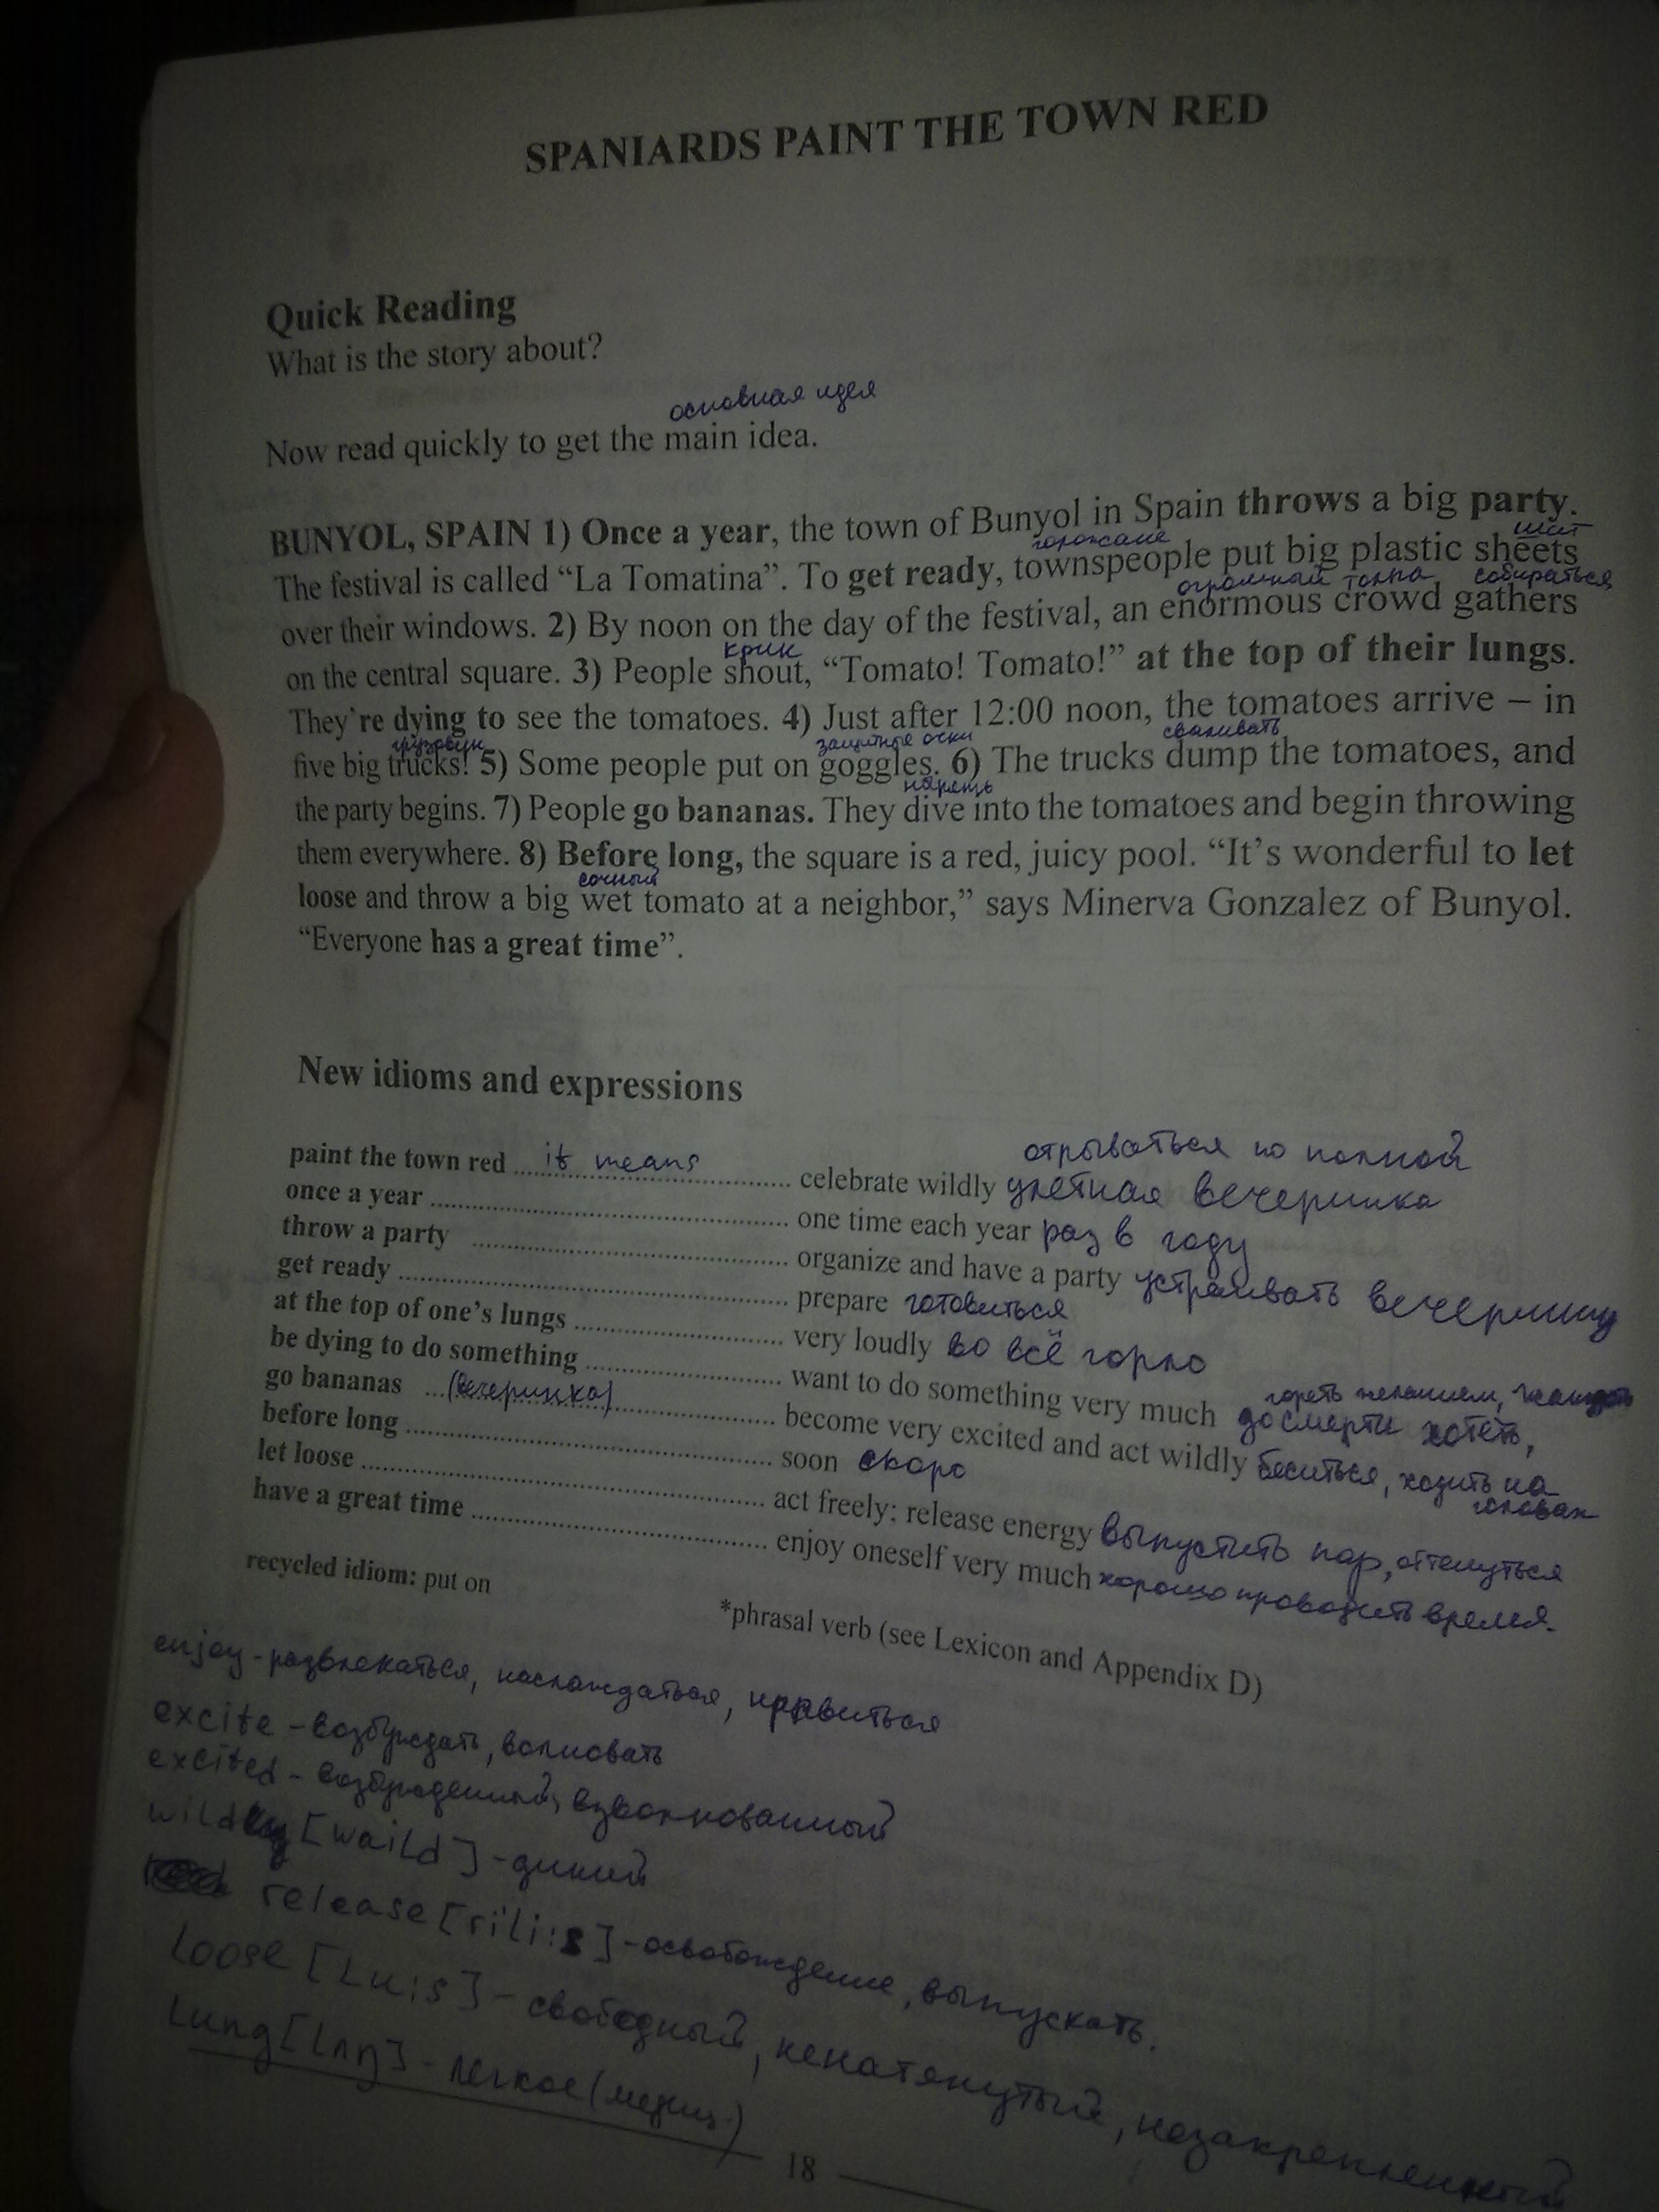 SPANIARDS PAINT THE TOWN RED
Quick Reading
What is the story about?
основная идея
Now read quickly to get the main idea.
BUNYOL, SPAIN 1) Once a year, the town of Bunyol in Spain throws a big party.
горожане
The festival is called “La Tomatina”. To get ready, townspeople put big plastic sheets
огромный толпа собираться
over their windows. 2) By noon on the day of the festival, an enormous crowd gathers
крик
on the central square. 3) People shout, “Tomato! Tomato!” at the top of their lungs.
They're dying to see the tomatoes. 4) Just after 12:00 noon, the tomatoes arrive – in
грузовик защитные очки сваливать
five big trucks! 5) Some people put on goggles. 6) The trucks dump the tomatoes, and
the party begins. 7) People go bananas. They dive into the tomatoes and begin throwing
them everywhere. 8) Before long, the square is a red, juicy pool. “It's wonderful to let
сочный
loose and throw a big wet tomato at a neighbor,” says Minerva Gonzalez of Bunyol.
“Everyone has a great time”.
New idioms and expressions
отрываться по полной
paint the town red it means celebrate wildly улетная вечеринка
once a year one time each year раз в году
throw a party organize and have a party устраивать вечеринку
get ready prepare готовиться
at the top of one's lungs very loudly во всё горло
гореть желанием,
be dying to do something want to do something very much до смерти хотеть,
go bananas (вечеринка) become very excited and act wildly беситься, ходить на
головах
before long soon скоро
let loose act freely; release energy выпустить пар, оттянуться
have a great time enjoy oneself very much хорошо проводить время.
recycled idiom: put on
*phrasal verb (see Lexicon and Appendix D)
enjoy - развлекаться, наслаждаться, нравиться
excite - возбуждать, волновать
excited - возбужденный, взволнованный
wild [waild] - дикий
release [ri'li:s] - освобождение, выпускать.
Loose [Lu:s] - свободный, ненатянутый, незакрепленный
Lung [lʌŋ] - легкое (медиц.)
18